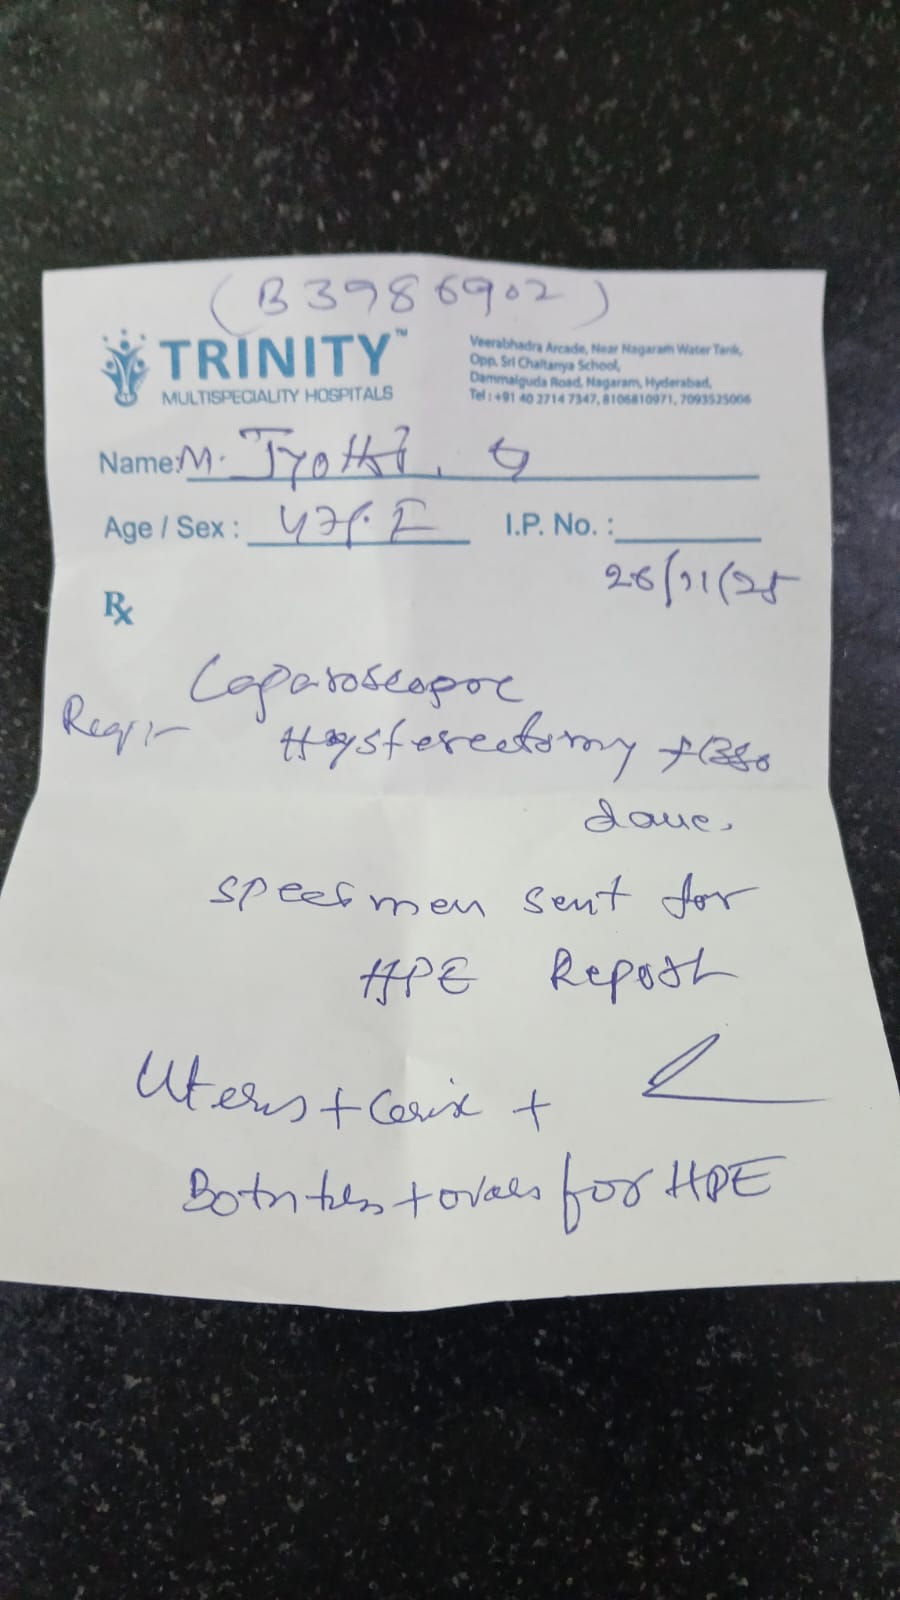 (B3986902)
TRINITY™
MULTISPECIALITY HOSPITALS
Veerabhadra Arcade, Near Nagaram Water Tank,
Opp. Sri Chaitanya School,
Dammaiguda Road, Nagaram, Hyderabad,
Tel : +91 40 2714 7347, 8106810971, 7093525006
Name: M. Jyothi.
Age / Sex : 47y. F I.P. No. :
26/11/25
Rx
Laparoscopic
Hysterectomy + BSO
done.
specimen sent for
HPE Report
Uterus + Cervix +
Both tubes + ovaries for HPE